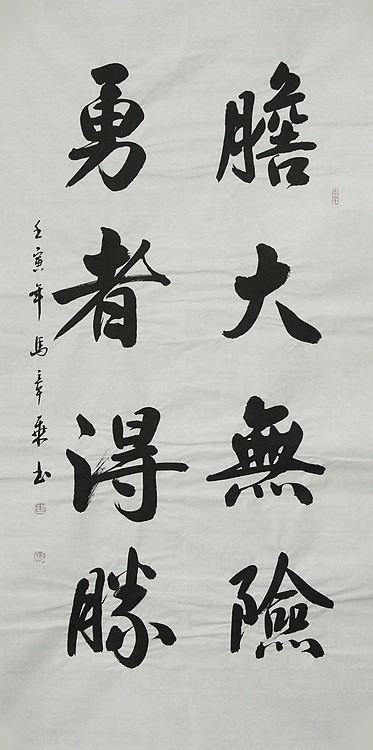 膽大無險
勇者得勝
壬寅年馬章乘书